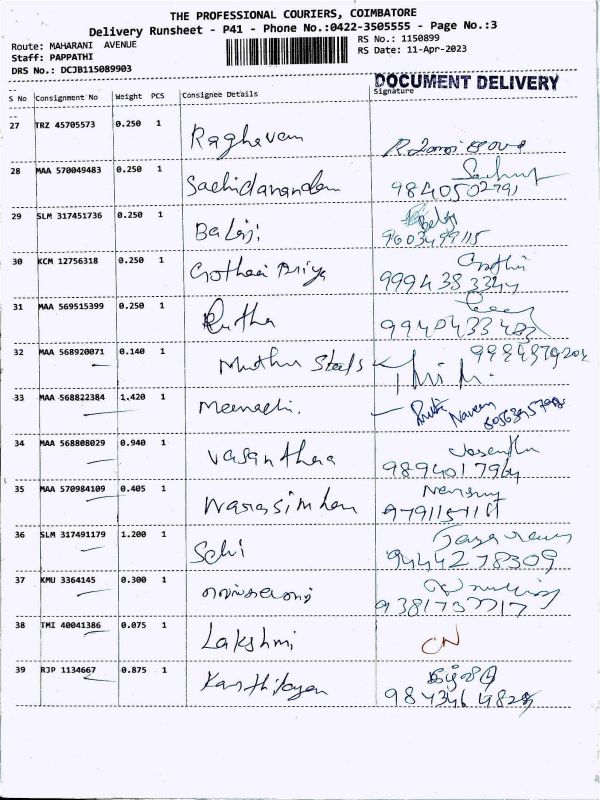 THE PROFESSIONAL COURIERS, COIMBATORE
Delivery Runsheet - P41 - Phone No.:0422-3505555 - Page No.:3
Route: MAHARANI AVENUE RS No.: 1150899
Staff: PAPPATHI RS Date: 11-Apr-2023
DRS No.: DCJB115089903
DOCUMENT DELIVERY
S No Consignment No Weight PCS Consignee Details Signature
27 TRZ 45705573 0.250 1 Raghavan
28 MAA 570049483 0.250 1 Sachidanandan
9840502791
29 SLM 317451736 0.250 1 Balaji
9603499115
30 KCM 12756318 0.250 1 Priya
9994383344
31 MAA 569515399 0.250 1
9940433483
32 MAA 568920071 0.140 1 Muthu Steels
33 MAA 568822384 1.420 1 Meenachi. Naveen
34 MAA 568808029 0.940 1 Vasantha Vasantha
9894017964
35 MAA 570984109 0.405 1 Narasimhan
36 SLM 317491179 1.200 1 Selvi
9444278309
37 KMU 3364145 0.300 1
9381737717
38 TMI 40041386 0.075 1 Lakshmi CN
39 RJP 1134667 0.875 1